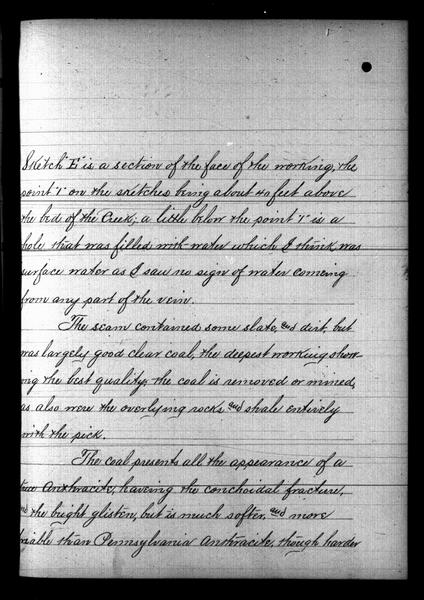 Sketch "E" is a section of the face of the working, the
point "1" on the sketches being about 40 feet above
the bed of the Creek; a little below the point "1" is a
hole that was filled with water which I think was
surface water as I saw no sign of water comeing
from any part of the vein.
The seam contained some slate, and dirt, but
was largely good clear coal, the deepest working show
ng the best quality, the coal is removed or mined,
as also were the overlying rocks and shale entirely
with the pick.
The coal presents all the appearance of a
true Anthracite, haveing the conchoidal fracture,
and the bright glisten, but is much softer, and more
riable than Pennsylvania Anthracite, though harder